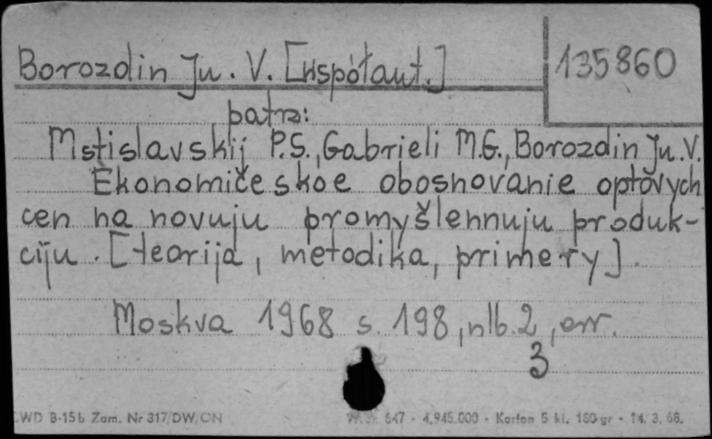 Borozdin Ju. V. [współaut.]
135860
patrz:
Mstislavskij P.S., Gabrieli M.G., Borozdin Ju.V.
Ekonomičeskoe obosnovanie optovych
cen na novuju promyšlennuju produk-
ciju. [teorija, metodika, primery].
Moskva 1968 s. 198, nlb. 2, err.
3
WD B-15b Zam. Nr 317/DW/ON
647 - 4.945.000 - Karton 5 kl. 180 gr - 14. 3. 66.